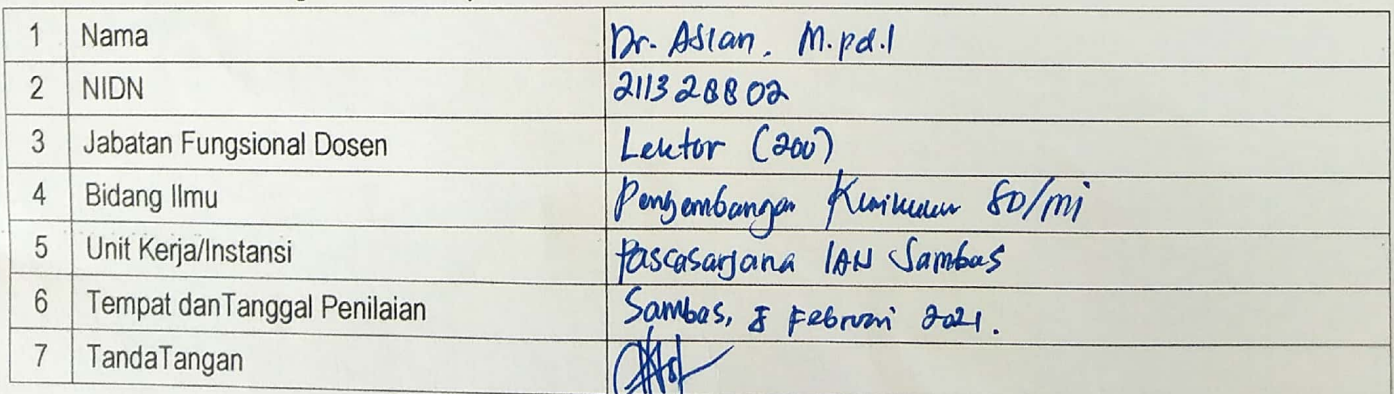 1 Nama Dr. Aslan, M.pd.I
2 NIDN 2113288802
3 Jabatan Fungsional Dosen Lektor (200)
4 Bidang Ilmu Pengembangan Kurikulum SD/mi
5 Unit Kerja/Instansi Pascasarjana IAN Sambas
6 Tempat danTanggal Penilaian Sambas, 8 Februari 2021.
7 TandaTangan